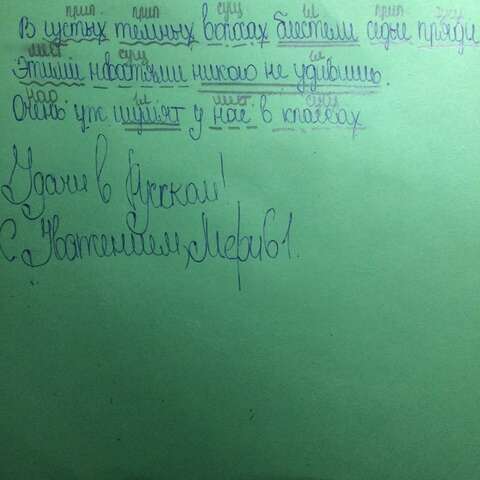 прил прил сущ гл прил сущ
В густых темных волосах блестели седые пряди
мест сущ гл
Этими занятиями никого не удивишь.
нар гл мест сущ
Очень уж шумят у нас в классах
Удачи в Русском!
С Уважением, Мери61.